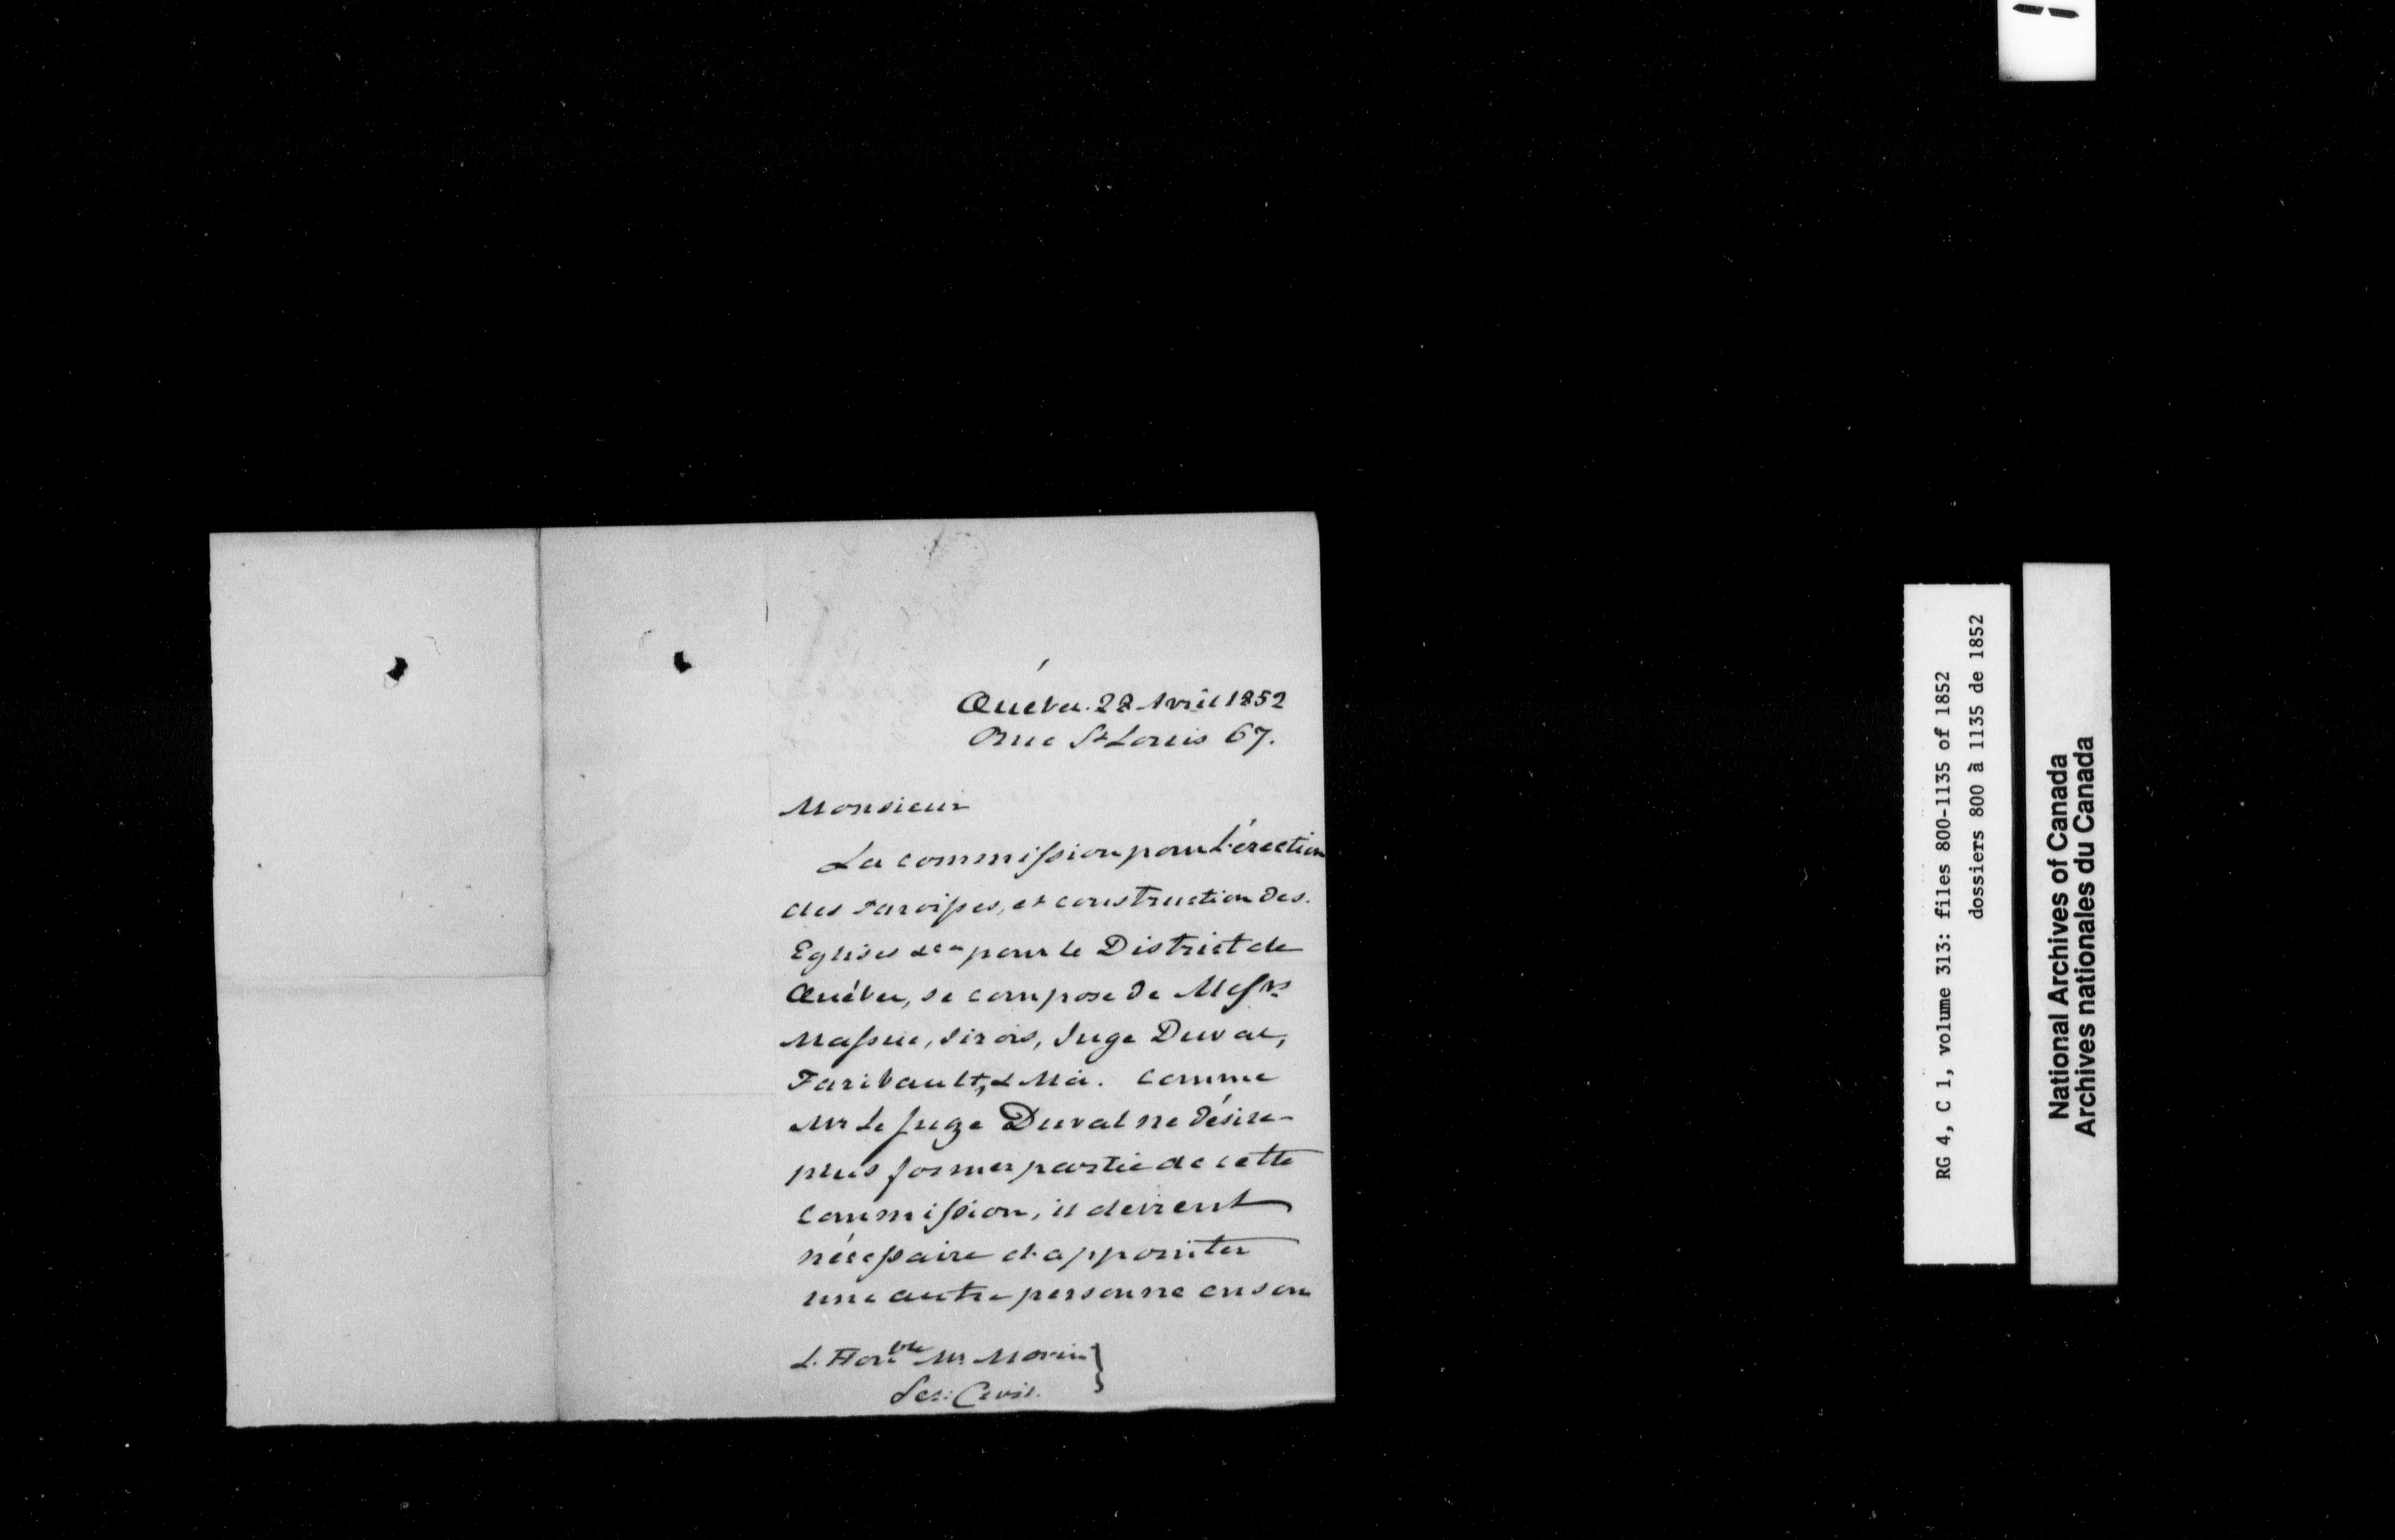 Québec. 28 Avril 1852
Rue St Louis 67.
Monsieur
La commission pour l'érection
des Paroisses, et construction des
Eglises &ca pour le District de
Québec, se compose de Messrs
Massue, Sirois, Juge Duval,
Faribault, & Moi. Comme
Mr Le Juge Duval ne désire
plus former partie de cette
commission, il devient
nécessaire d'appointer
une autre personne en son
L. Honble Mr Morin }
Sec: Civil.
RG 4, C 1, volume 313: files 800-1135 of 1852
dossiers 800 à 1135 de 1852
National Archives of Canada
Archives nationales du Canada